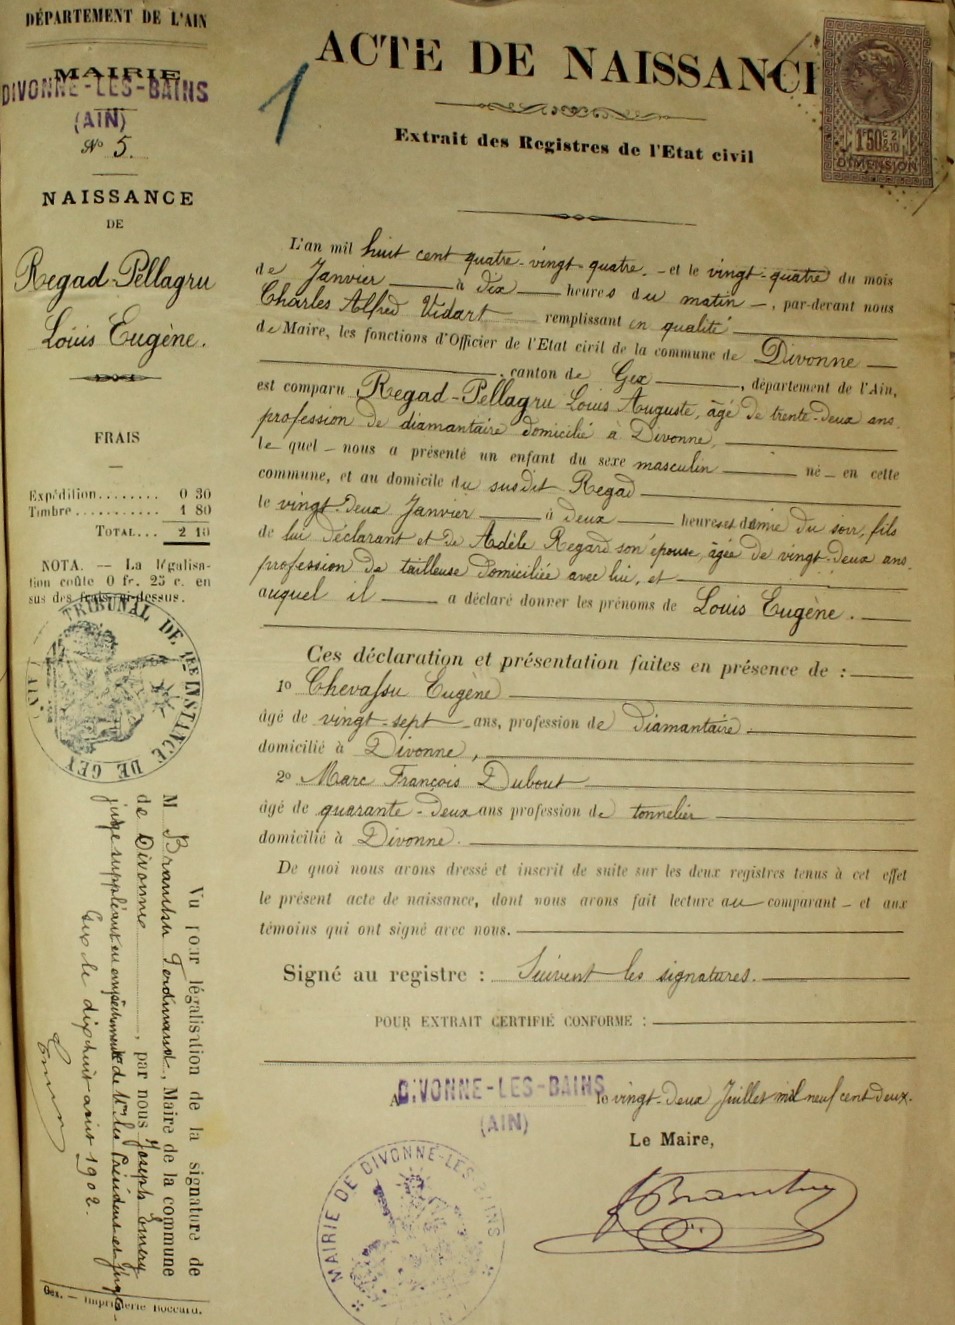 DÉPARTEMENT DE L'AIN
MAIRIE
DIVONNE-LES-BAINS
(AIN)
No 5.
NAISSANCE
DE
Regad-Pellagru
Louis Eugène.
FRAIS
Expédition........ 0 30
Timbre........... 1 80
TOTAL... 2 10
NOTA. — La légalisa-
tion coûte 0 fr. 25 c. en
sus des frais ci-dessus.
TRIBUNAL DE 1ERE INSTANCE DE GEX (AIN)
Vu pour légalisation de la signature de
M Branchu Ferdinand, Maire de la commune
de Divonne, par nous Joseph Emery
juge suppléant en empêchement de Mrs les Président et Juges
Gex le dix huit 1902.
Gex. — Imprimerie Boccard.
1
ACTE DE NAISSANCE
Extrait des Registres de l'Etat civil
1F50 C 2/10 EN
DIMENSION
L'an mil huit cent quatre-vingt-quatre - et le vingt-quatre du mois
de Janvier à dix heures du matin -, par-devant nous
Charles Alfred Vidart remplissant en qualité
de Maire, les fonctions d'Officier de l'Etat civil de la commune de Divonne
, canton de Gex, département de l'Ain,
est comparu Regad-Pellagru Louis Auguste, âgé de trente-deux ans,
profession de diamantaire domicilié à Divonne,
le quel - nous a présenté un enfant du sexe masculin né - en cette
commune, et au domicile du susdit Regad
le vingt-deux Janvier à deux heures et demie du soir, fils
de lui déclarant et de Adèle Regard son épouse, âgée de vingt-deux ans,
profession de tailleuse domiciliée avec lui, et
auquel il a déclaré donner les prénoms de Louis Eugène.
Ces déclaration et présentation faites en présence de :
1o Chevassu Eugène
âgé de vingt-sept ans, profession de diamantaire
domicilié à Divonne,
2o Marc François Dubout
âgé de quarante-deux ans profession de tonnelier
domicilié à Divonne.
De quoi nous avons dressé et inscrit de suite sur les deux registres tenus à cet effet
le présent acte de naissance, dont nous avons fait lecture au comparant - et aux
témoins qui ont signé avec nous.
Signé au registre : Suivent les signatures.
POUR EXTRAIT CERTIFIÉ CONFORME :
A DIVONNE-LES-BAINS le vingt-deux Juillet mil neuf cent deux.
(AIN)
Le Maire,
Branchu
MAIRIE DE DIVONNE-LES-BAINS